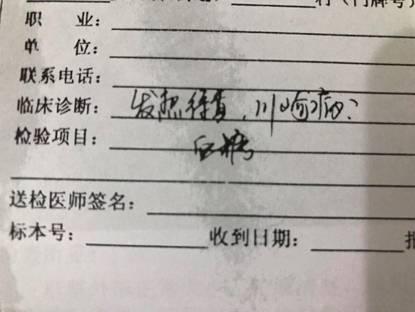 村（门牌号）
职　业：
单　位：
联系电话：
临床诊断：发热待查，川崎病？
检验项目：
送检医师签名：
标本号： 收到日期： 报